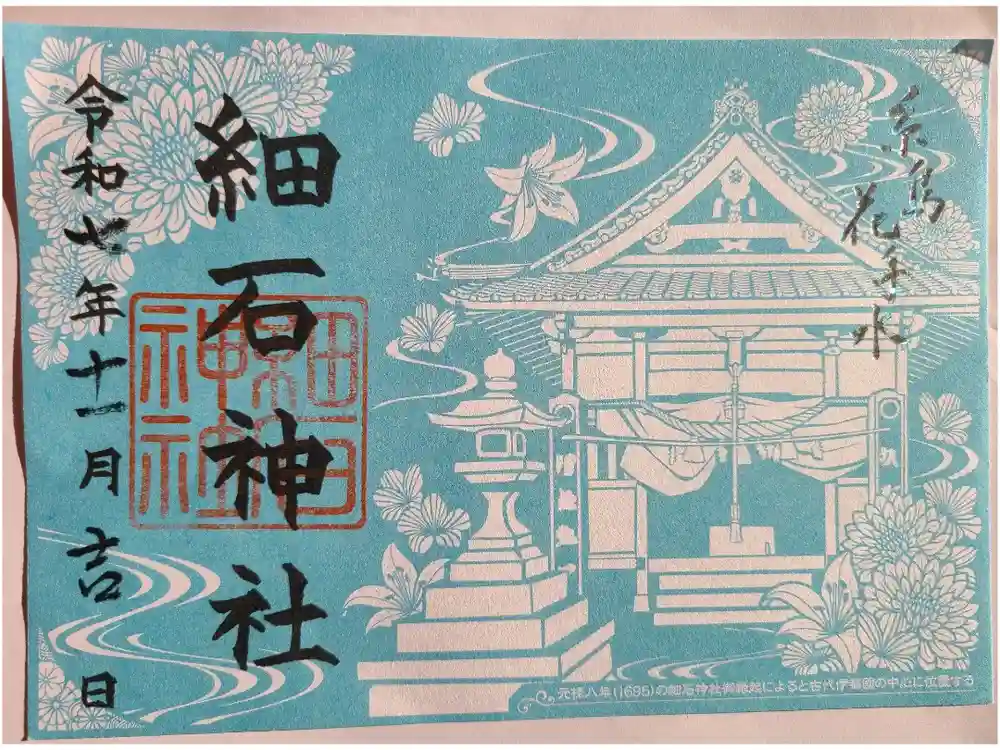 糸島
花手水
細石神社
令和七年十一月吉日
細石
神社
元禄八年(1695)の細石神社御縁起によると古代伊都國の中心に位置する